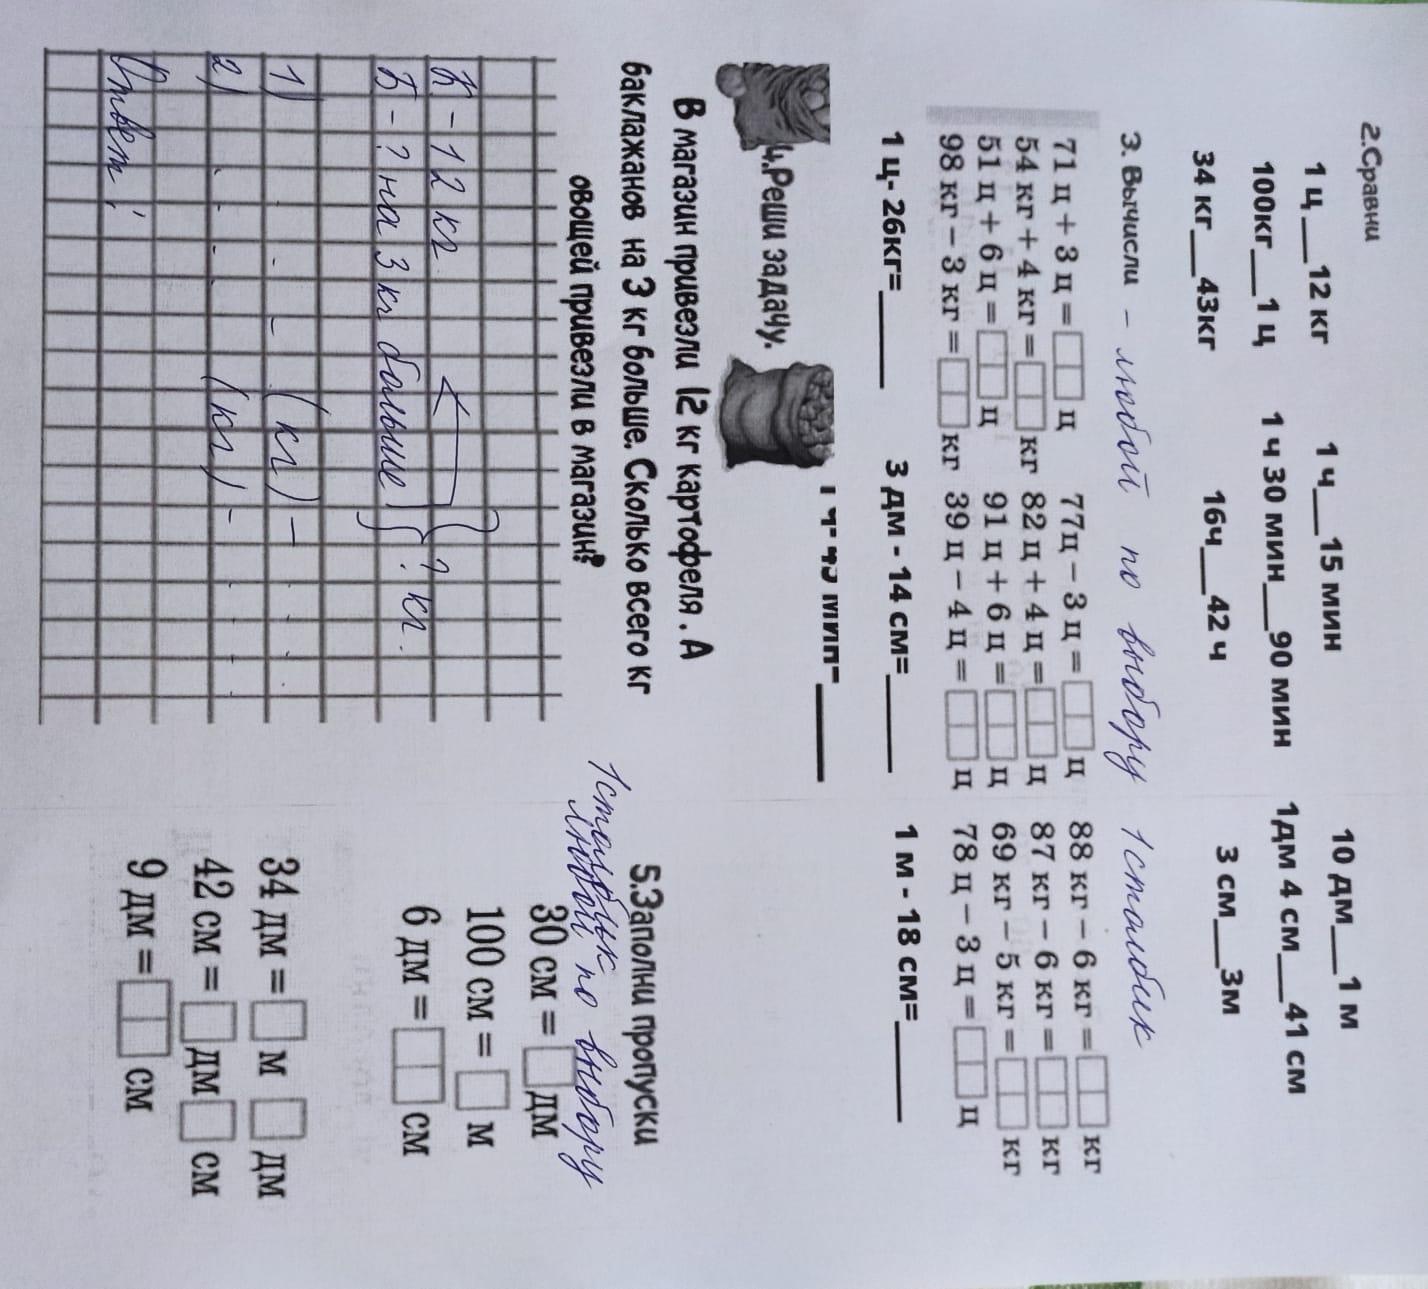 2.Сравни
1 ц___12 кг 1 ч___15 мин 10 дм___1 м
100кг___1 ц 1 ч 30 мин___90 мин 1дм 4 см___41 см
34 кг___43кг 16ч___42 ч 3 см___3м
3. Вычисли – любой по выбору 1 столбик
71 ц + 3 ц = ц 77ц – 3 ц = ц 88 кг – 6 кг = кг
54 кг + 4 кг = кг 82 ц + 4 ц = ц 87 кг – 6 кг = кг
51 ц + 6 ц = ц 91 ц + 6 ц = ц 69 кг – 5 кг = кг
98 кг – 3 кг = кг 39 ц – 4 ц = ц 78 ц – 3 ц = ц
1 ц- 26кг=_____ 3 дм - 14 см=_____ 1 м - 18 см=_____
4.Реши задачу.
В магазин привезли 12 кг картофеля . А
баклажанов на 3 кг больше. Сколько всего кг
овощей привезли в магазин?
К – 12 кг
Б – ? на 3 кг больше ? кг.
1) . . – (кг) – . . .
2) . . . . (кг) – . . .
Ответ:
5.Заполни пропуски
1 столбик
любой по выбору
30 см = дм
100 см = м
6 дм = см
34 дм = м дм
42 см = дм см
9 дм = см